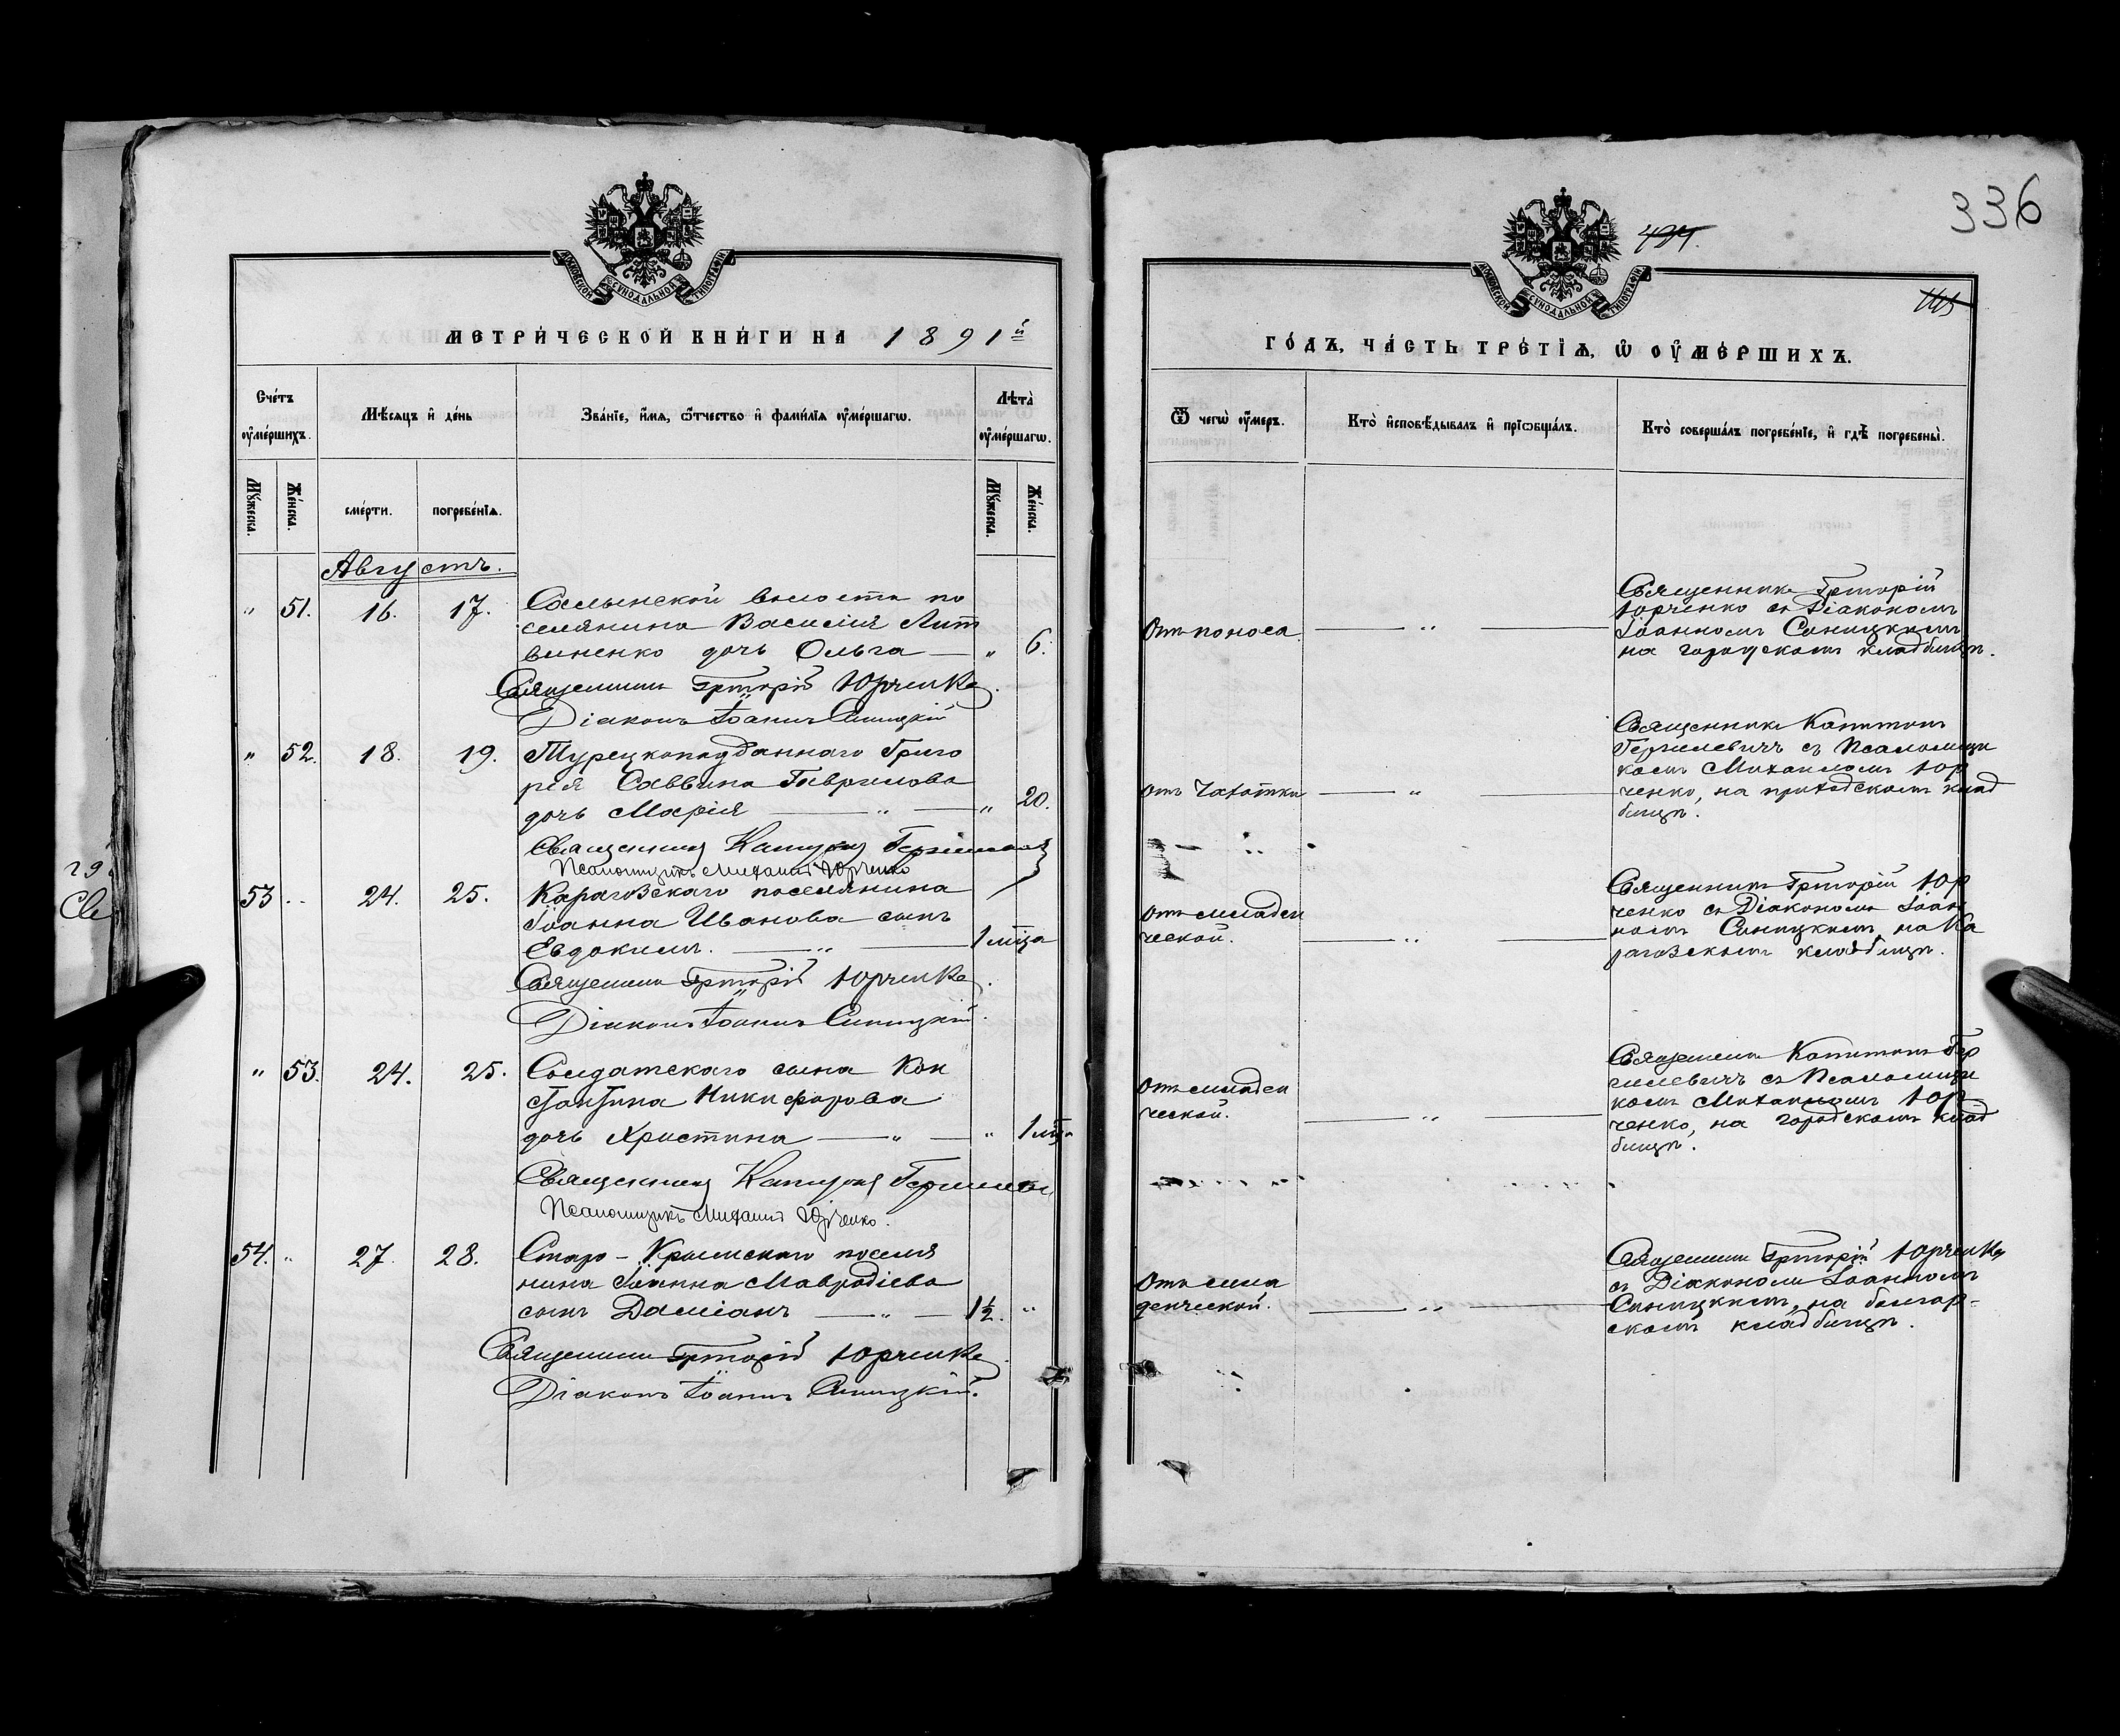 336
МОСКОВСКОЙ СУНОДАЛЬНОЙ ТИПОГРАФІИ
МЕТРИ́ЧЕСКОЙ КНИ́ГИ НА 1891й
Сче́тъ ᲂу҆ме́ршихъ.
Мѣ́сяцъ и҆ де́нь
Зва́нїе, и҆́мѧ, ѻ҆́тчество и҆ фами́лїѧ ᲂу҆ме́ршагѡ.
Лѣ́та ᲂу҆ме́ршагѡ.
Мꙋ́жеска.
Же́нска.
сме́рти.
погребе́нїѧ.
Мꙋ́жеска.
Же́нска.
Августъ.
" 51. 16. 17. волости по
селянина Василія Лит
виненко дочь Ольга — " 6.
Священникъ Григорій Юрченко.
Діаконъ Іоаннъ Синицкій
" 52. 18. 19. Турецкоподданнаго Григо
рія Саввина Гаврилова
дочь Марія — " — " 20.
Священникъ Капитонъ
Псаломщикъ Михаилъ Юрченко
53 " 24. 25. Карагозскаго поселянина
Іоанна Иванова сынъ
Евдокимъ. — " — 1 мца
Священникъ Григорій Юрченко.
Діаконъ Іоаннъ Синицкій.
" 53. 24. 25. Солдатскаго сына Кон
стантина Никифорова
дочь Христина — " — " 1 мца
Священникъ Капитонъ
Псаломщикъ Михаилъ Юрченко.
54. " 27. 28. Старо-Крымскаго поселя
нина Іоанна Мавродіева
сынъ Даміанъ — " — 1½. "
Священникъ Григорій Юрченко.
Діаконъ Іоаннъ Синицкій.
МОСКОВСКОЙ СУНОДАЛЬНОЙ ТИПОГРАФІИ
ГО́ДЪ, ЧА́СТЬ ТРЕ́ТЇѦ, Ѡ҆ ОУ҆МЕ́РШИХЪ.
Ѿ чегѡ̀ ᲂу҆́меръ.
Кто̀ и҆сповѣ́дывалъ и҆ прїѡбща́лъ.
Кто̀ соверша́лъ погребе́нїе, и҆ гдѣ̀ погребены̀.
Отъ поноса. — " —
Священникъ Григорій
Юрченко съ Діакономъ
Іоанномъ Синицкимъ
на городскомъ кладбищѣ.
отъ Чахотки — " —
Священникъ Капитонъ
съ Псаломщи
комъ Михаиломъ Юр
ченко, на приходскомъ клад
бищѣ.
Отъ младен
ческой. — " —
Священникъ Григорій Юр
ченко съ Діакономъ Іоан
номъ Синицкимъ, на Ка
рагозскомъ кладбищѣ.
Отъ младен
ческой. — " —
Священникъ Капитонъ
съ Псаломщи
комъ Михаиломъ Юр
ченко, на городскомъ клад
бищѣ.
Отъ мла
денческой. — " —
Священникъ Григорій Юрченко
съ Діакономъ Іоанномъ
Синицкимъ, на болгар-
скомъ кладбищѣ.